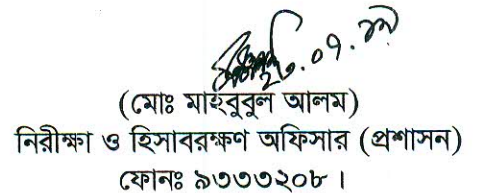 (মোঃ মাহবুবুল আলম)
নিরীক্ষা ও হিসাবরক্ষণ অফিসার (প্রশাসন)
ফোনঃ ৯৩৩৩২০৮।